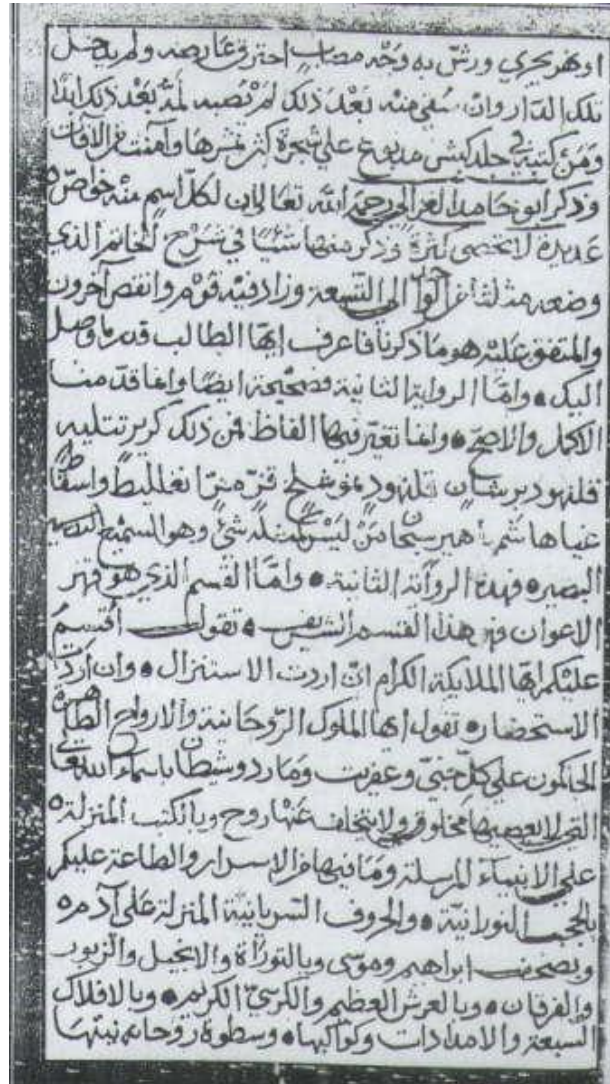 او نهر يجري ورش به وجه مصاب احترق عارضه ولم يدخل
تلك الدار وان سقى منه بعد ذلك لم تصبه لمة بعد ذلك ابدا
ومن كتبه في جلد كبش مدبوغ علي شجرة كثر ثمرها وآمنت من الآفات
وذكر ابو حامد الغزالي رحمه الله تعالى ان لكل اسم منه خواص
عديدة لا تحصى كثرة وذكر منها شيئا في شرح الخاتم الذي
وضعه مثلثا الى التسعة وزاد فيه قوم وانقص آخرون
والمتفق عليه هو ما ذكرنا فاعرف ايها الطالب قدر ما وصل
اليك وامّا الرواية الثانية فصحيحة ايضا وانما قدمنا
الاكمل والاصح وانما تغير فيها الفاظ فمن ذلك كرير تتليه
قلنهود برشان
ليس كمثله شئ وهو السميع
البصير فهذه الرواية الثانية وامّا القسم الذي هو قهر
الاعوان هذا القسم الشريف تقول اقسم
عليكم ايها الملايكة الكرام ان اردت الاستنزال وان اردت
الاستحضار تقول ايها الملوك الروحانية والارواح الطاهرة
الحاكمون علي كل جنيّ وعفريت ومارد وشيطان باسماء الله تعالى
التي لا يعصيها مخلوق ولا يتخلف عنها روح وبالكتب المنزلة
علي الانبياء المرسلة وما فيها من الاسرار والطاعة عليكم
بالحجب النورانية والحروف السريانية المنزلة على آدم
وبصحف ابراهيم وموسى وبالتوراة والانجيل والزبور
والفرقان وبالعرش العظيم والكرسي الكريم وبالافلاك
السبعة والامدادات وكواكبها وسطوة روحانيتها